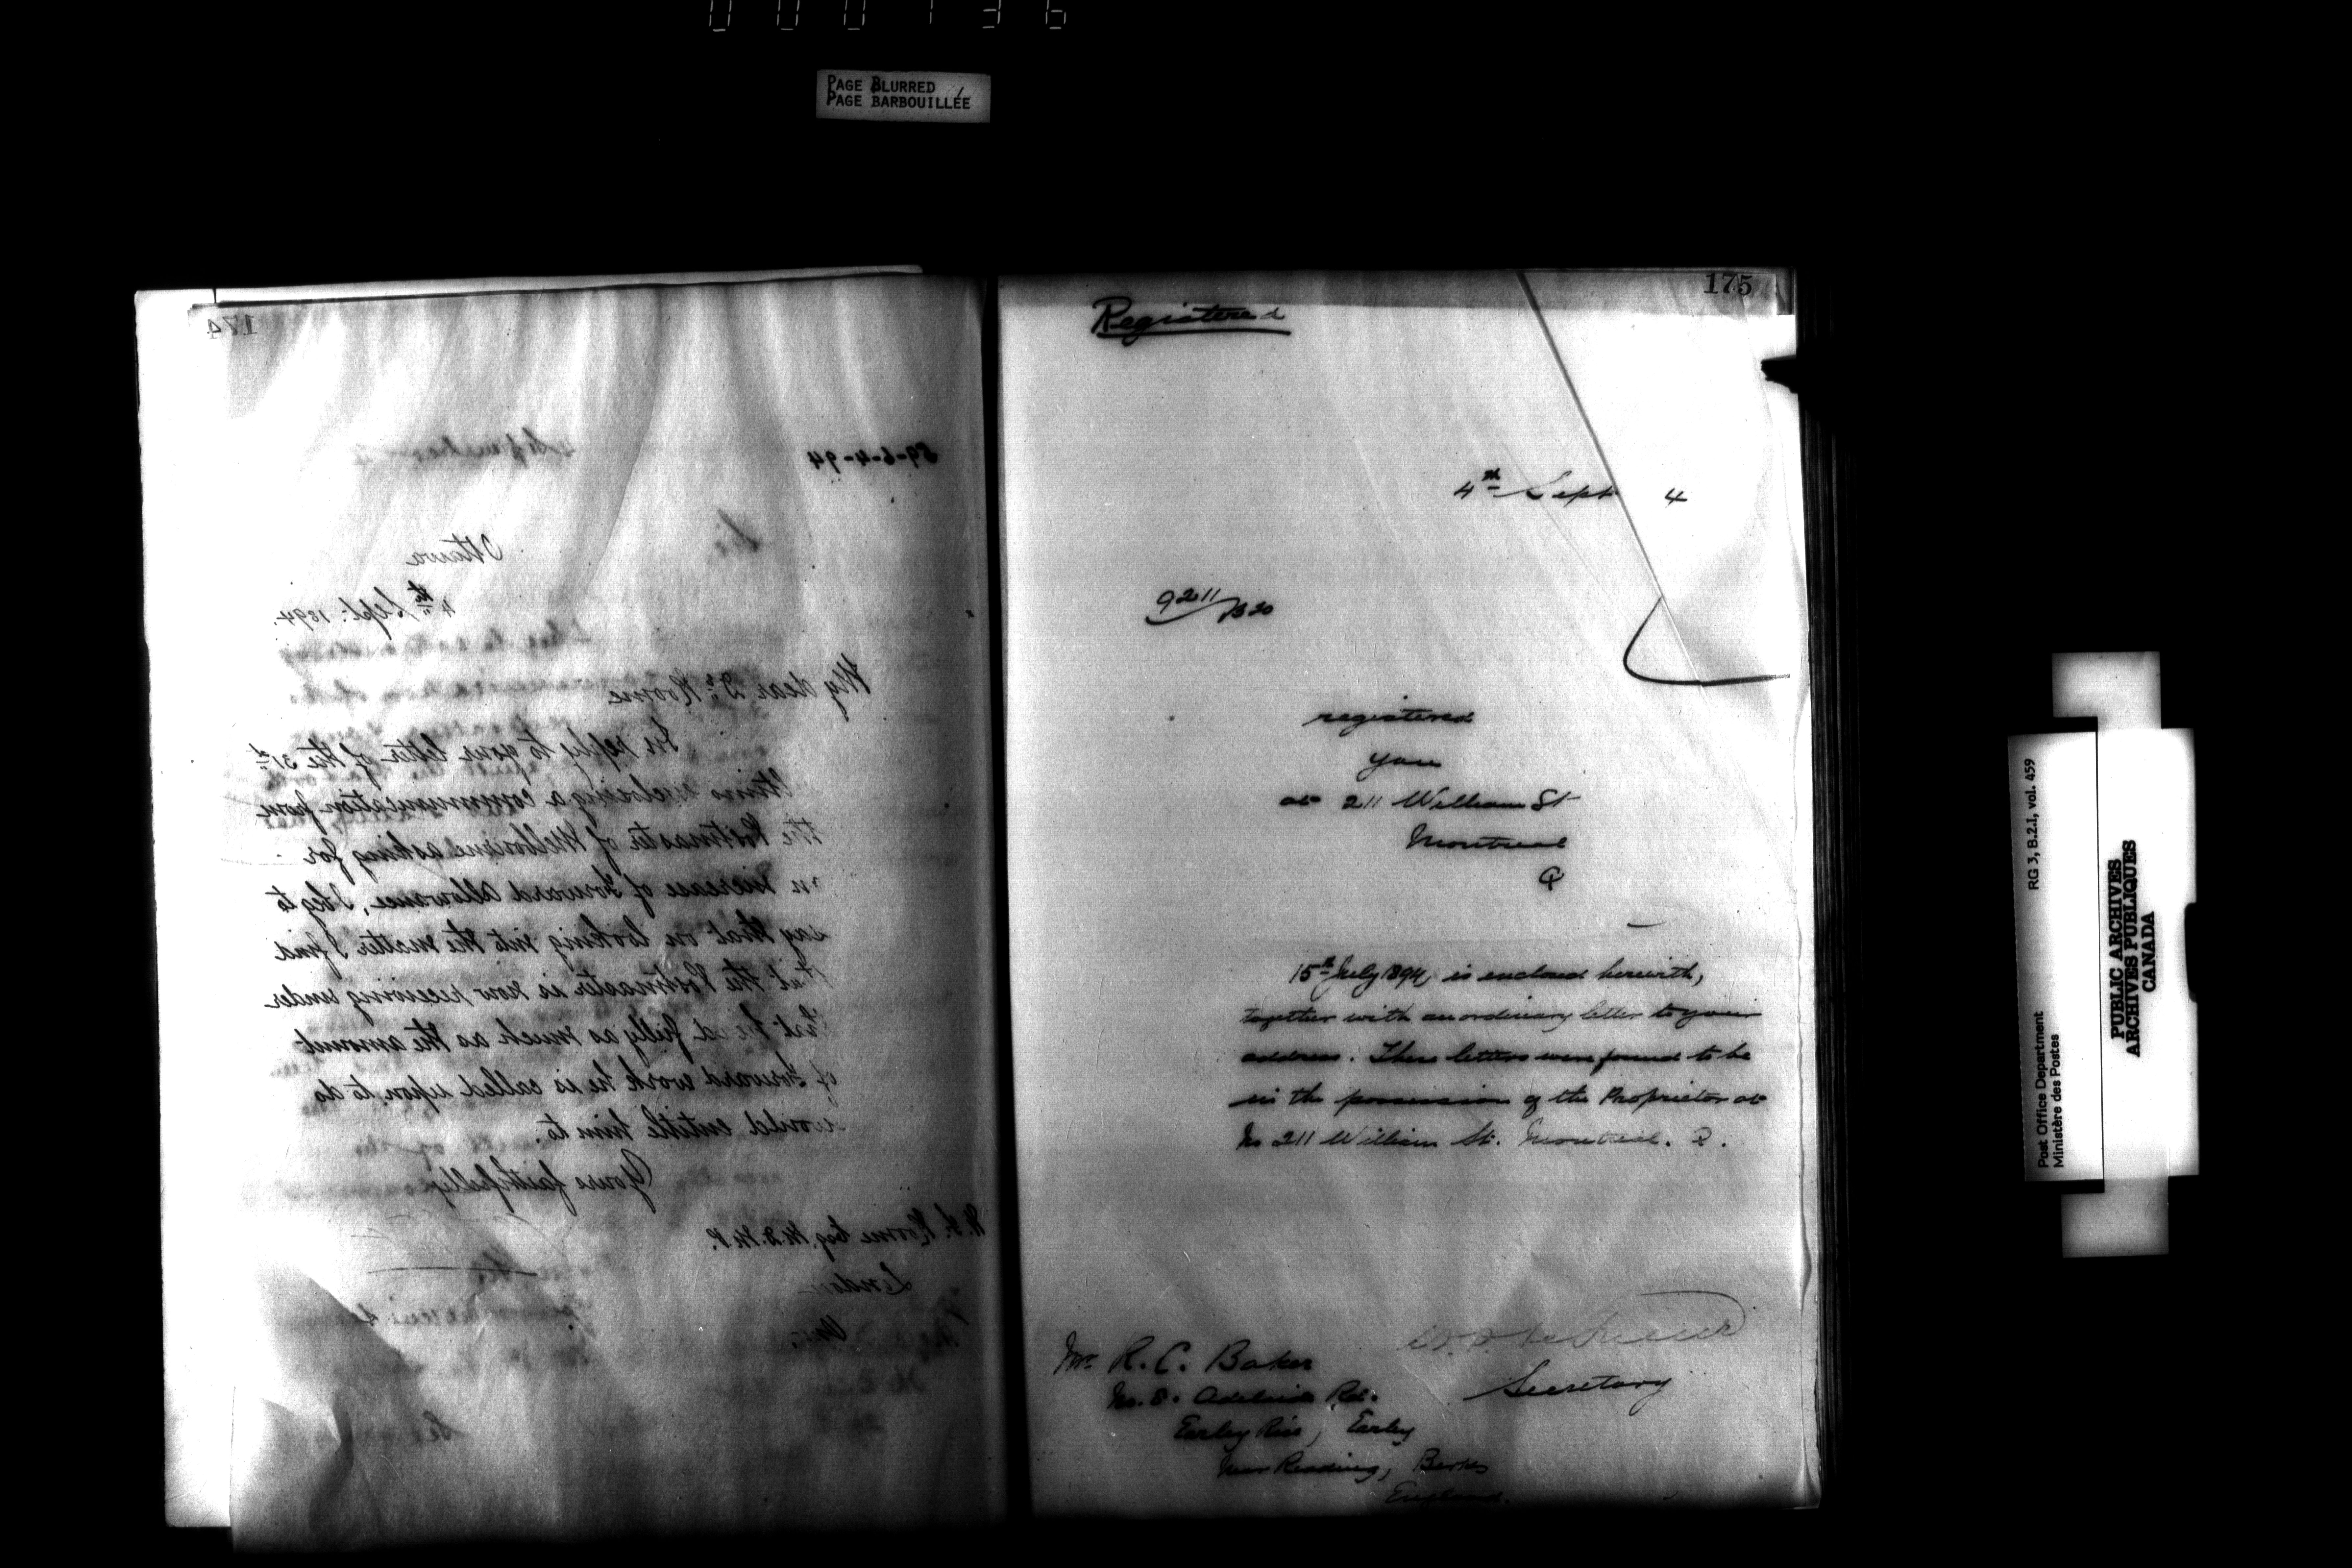 000136
PAGE BLURRED
PAGE BARBOUILLÉE
174
59-6-4-94
Ottawa
4th Sept: 1894.
My dear Dr Roome
In reply to your letter of the 31st
Ultimo enclosing a communication from
the Postmaster of Melbourne asking for
an increase of Forward Allowance, I beg to
say that on looking into the matter I find
that the Postmaster is now receiving under
that head fully as much as the amount
of Forward work he is called upon to do
would entitle him to.
Yours faithfully
W. F. Roome Esq. M.D. M.P.
London
Ont.
175
Registered
4th Sept 4
9211/B20
registered
you
at 211 William St
Montreal
Q
15th July 1894, is enclosed herewith,
together with an ordinary letter to your
address. These letters were found to be
in the possession of the Proprietor at
No 211 William St. Montreal. Q.
Secretary
Mr R. C. Baker
No. 8. Adelaide Rd.
Earley Rise, Earley
Near Reading, Berks
England.
Post Office Department
Ministère des Postes
RG 3, B.2.1, vol. 459
PUBLIC ARCHIVES
ARCHIVES PUBLIQUES
CANADA